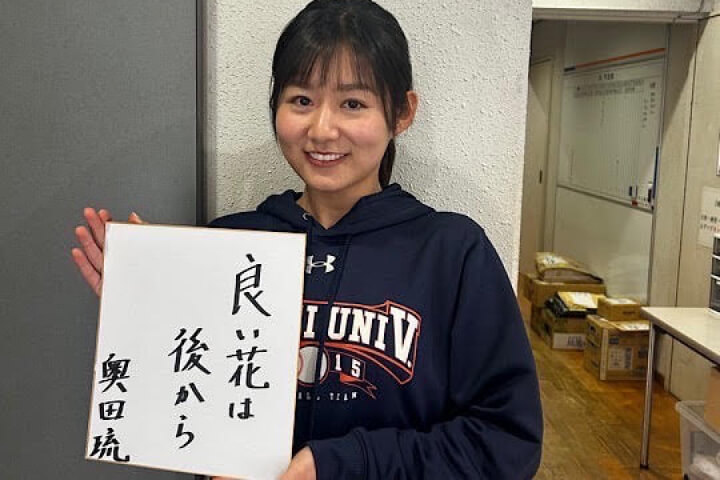 良い花は
後から
奥田琉
I UNIV.
15